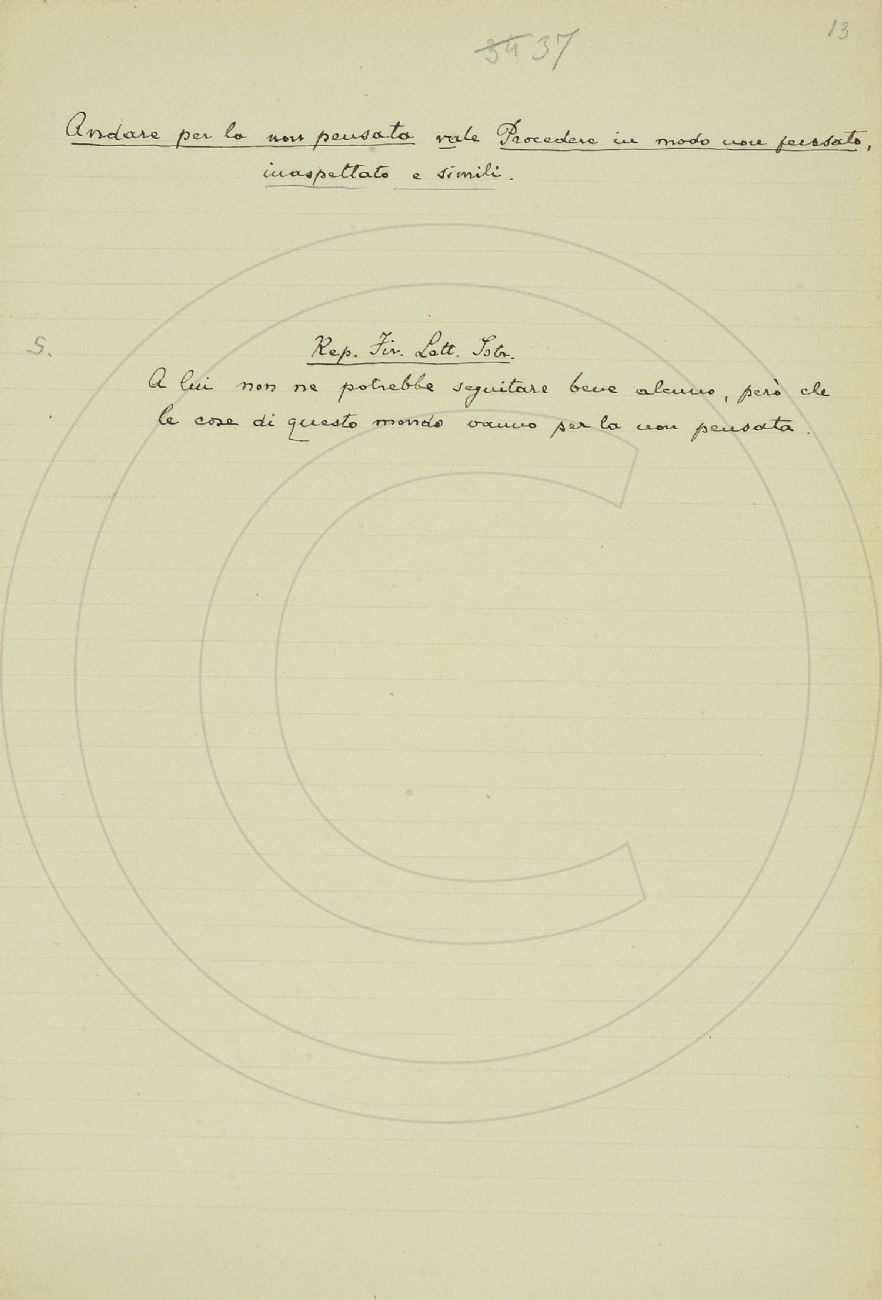 13
34 37
Andare per la non pensata vale Procedere in modo non pensato,
inaspettato e simili.
S.
Rep. Fir. Lett. Istr.
A lui non ne potrebbe seguitare bene alcuno, però che
le cose di questo mondo vanno per la non pensata.